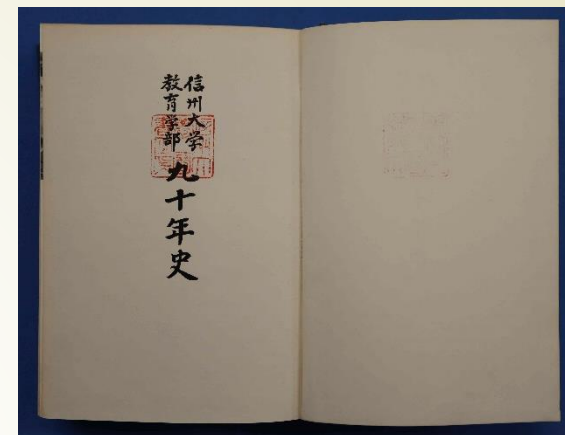 信州大学
教育学部
九十年史